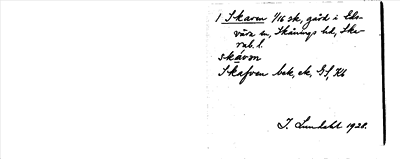 1 Skaven 1/16 sk, gård i Els-
vära sn, Skånings hd, Ska-
rab. l.
skávən
Skafven bek, ek, Gf, Kb
I. Lundahl 1928.